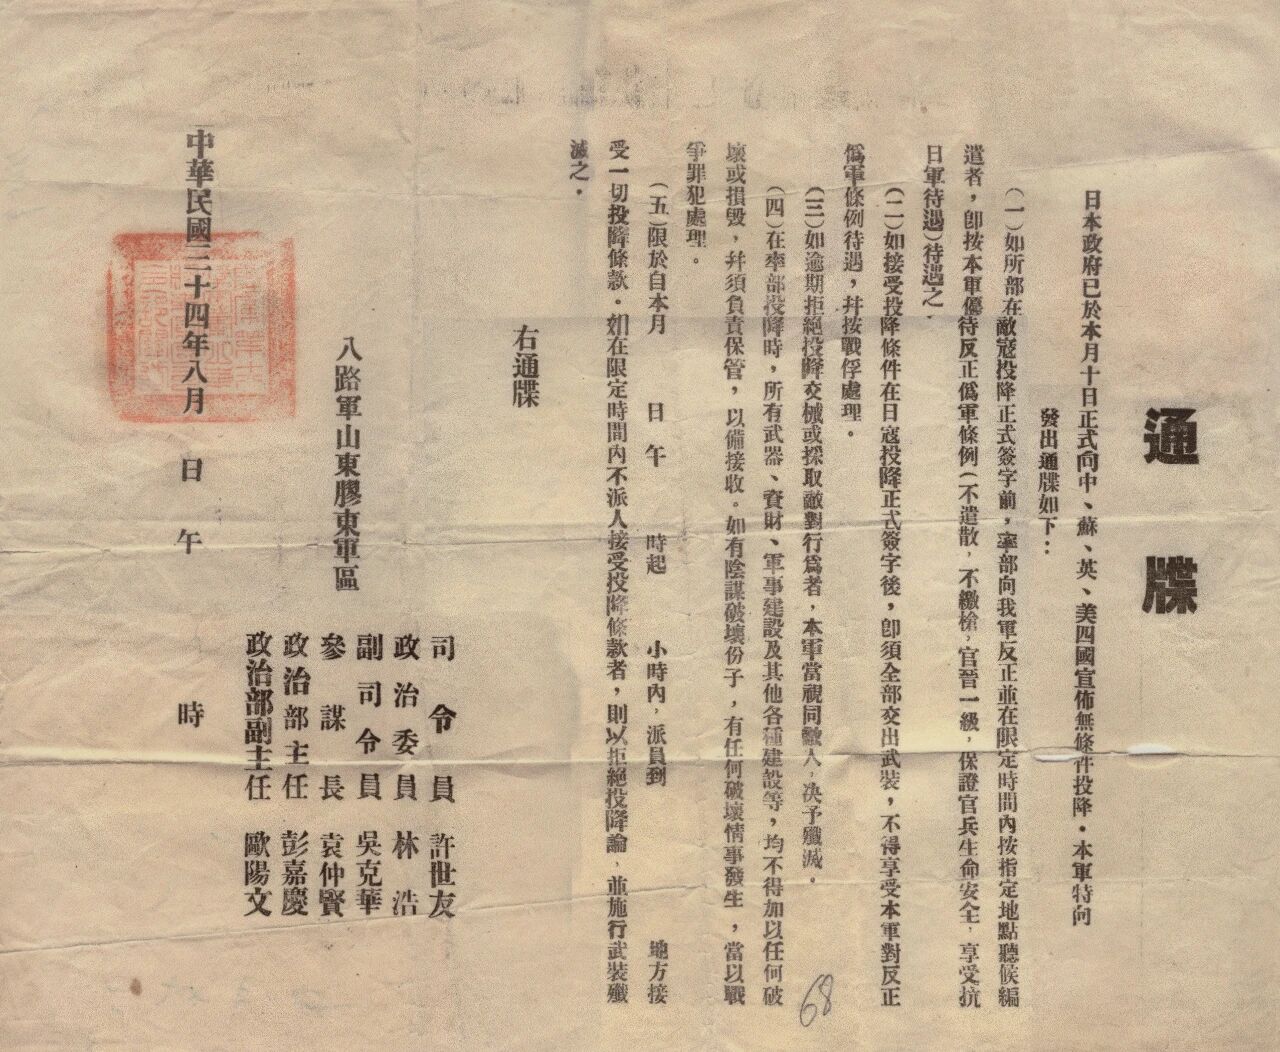 通牒
日本政府已於本月十日正式向中、蘇、英、美四國宣佈無條件投降．本軍特向
發出通牒如下：
（一）如所部在敵寇投降正式簽字前，率部向我軍反正並在限定時間內按指定地點聽候編
遣者，卽按本軍優待反正僞軍條例（不遣散，不繳槍，官晉一級，保證官兵生命安全，享受抗
日軍待遇）待遇之．
（二）如接受投降條件在日寇投降正式簽字後，卽須全部交出武裝，不得享受本軍對反正
僞軍條例待遇，幷按戰俘處理。
（三）如逾期拒絕投降交械或採取敵對行爲者，本軍當視同敵人，決予殲滅。
（四）在率部投降時，所有武器、資財、軍事建設及其他各種建設等，均不得加以任何破
壞或損毀，幷須負責保管，以備接收。如有陰謀破壞份子，有任何破壞情事發生，當以戰
爭罪犯處理。
（五）限於自本月 日午 時起 小時內，派員到 地方接
受一切投降條款．如在限定時間內不派人接受投降條款者，則以拒絕投降論，並施行武裝殲
滅之．
右通牒
八路軍山東膠東軍區
司令員 許世友
政治委員 林浩
副司令員 吳克華
參謀長 袁仲賢
政治部主任 彭嘉慶
政治部副主任 歐陽文
中華民國三十四年八月 日 午 時
68